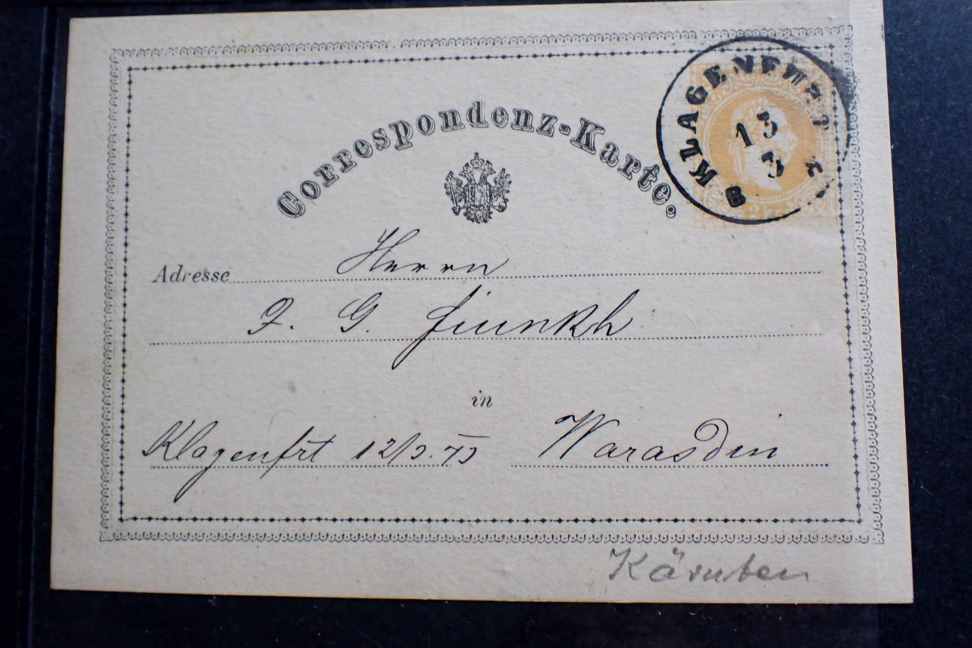 Correspondenz-Karte.
KLAGENFURT
13
3
Adresse Herrn
F. G.
in
Klagenfrt 12/3.73 Warasdin
Kärnten